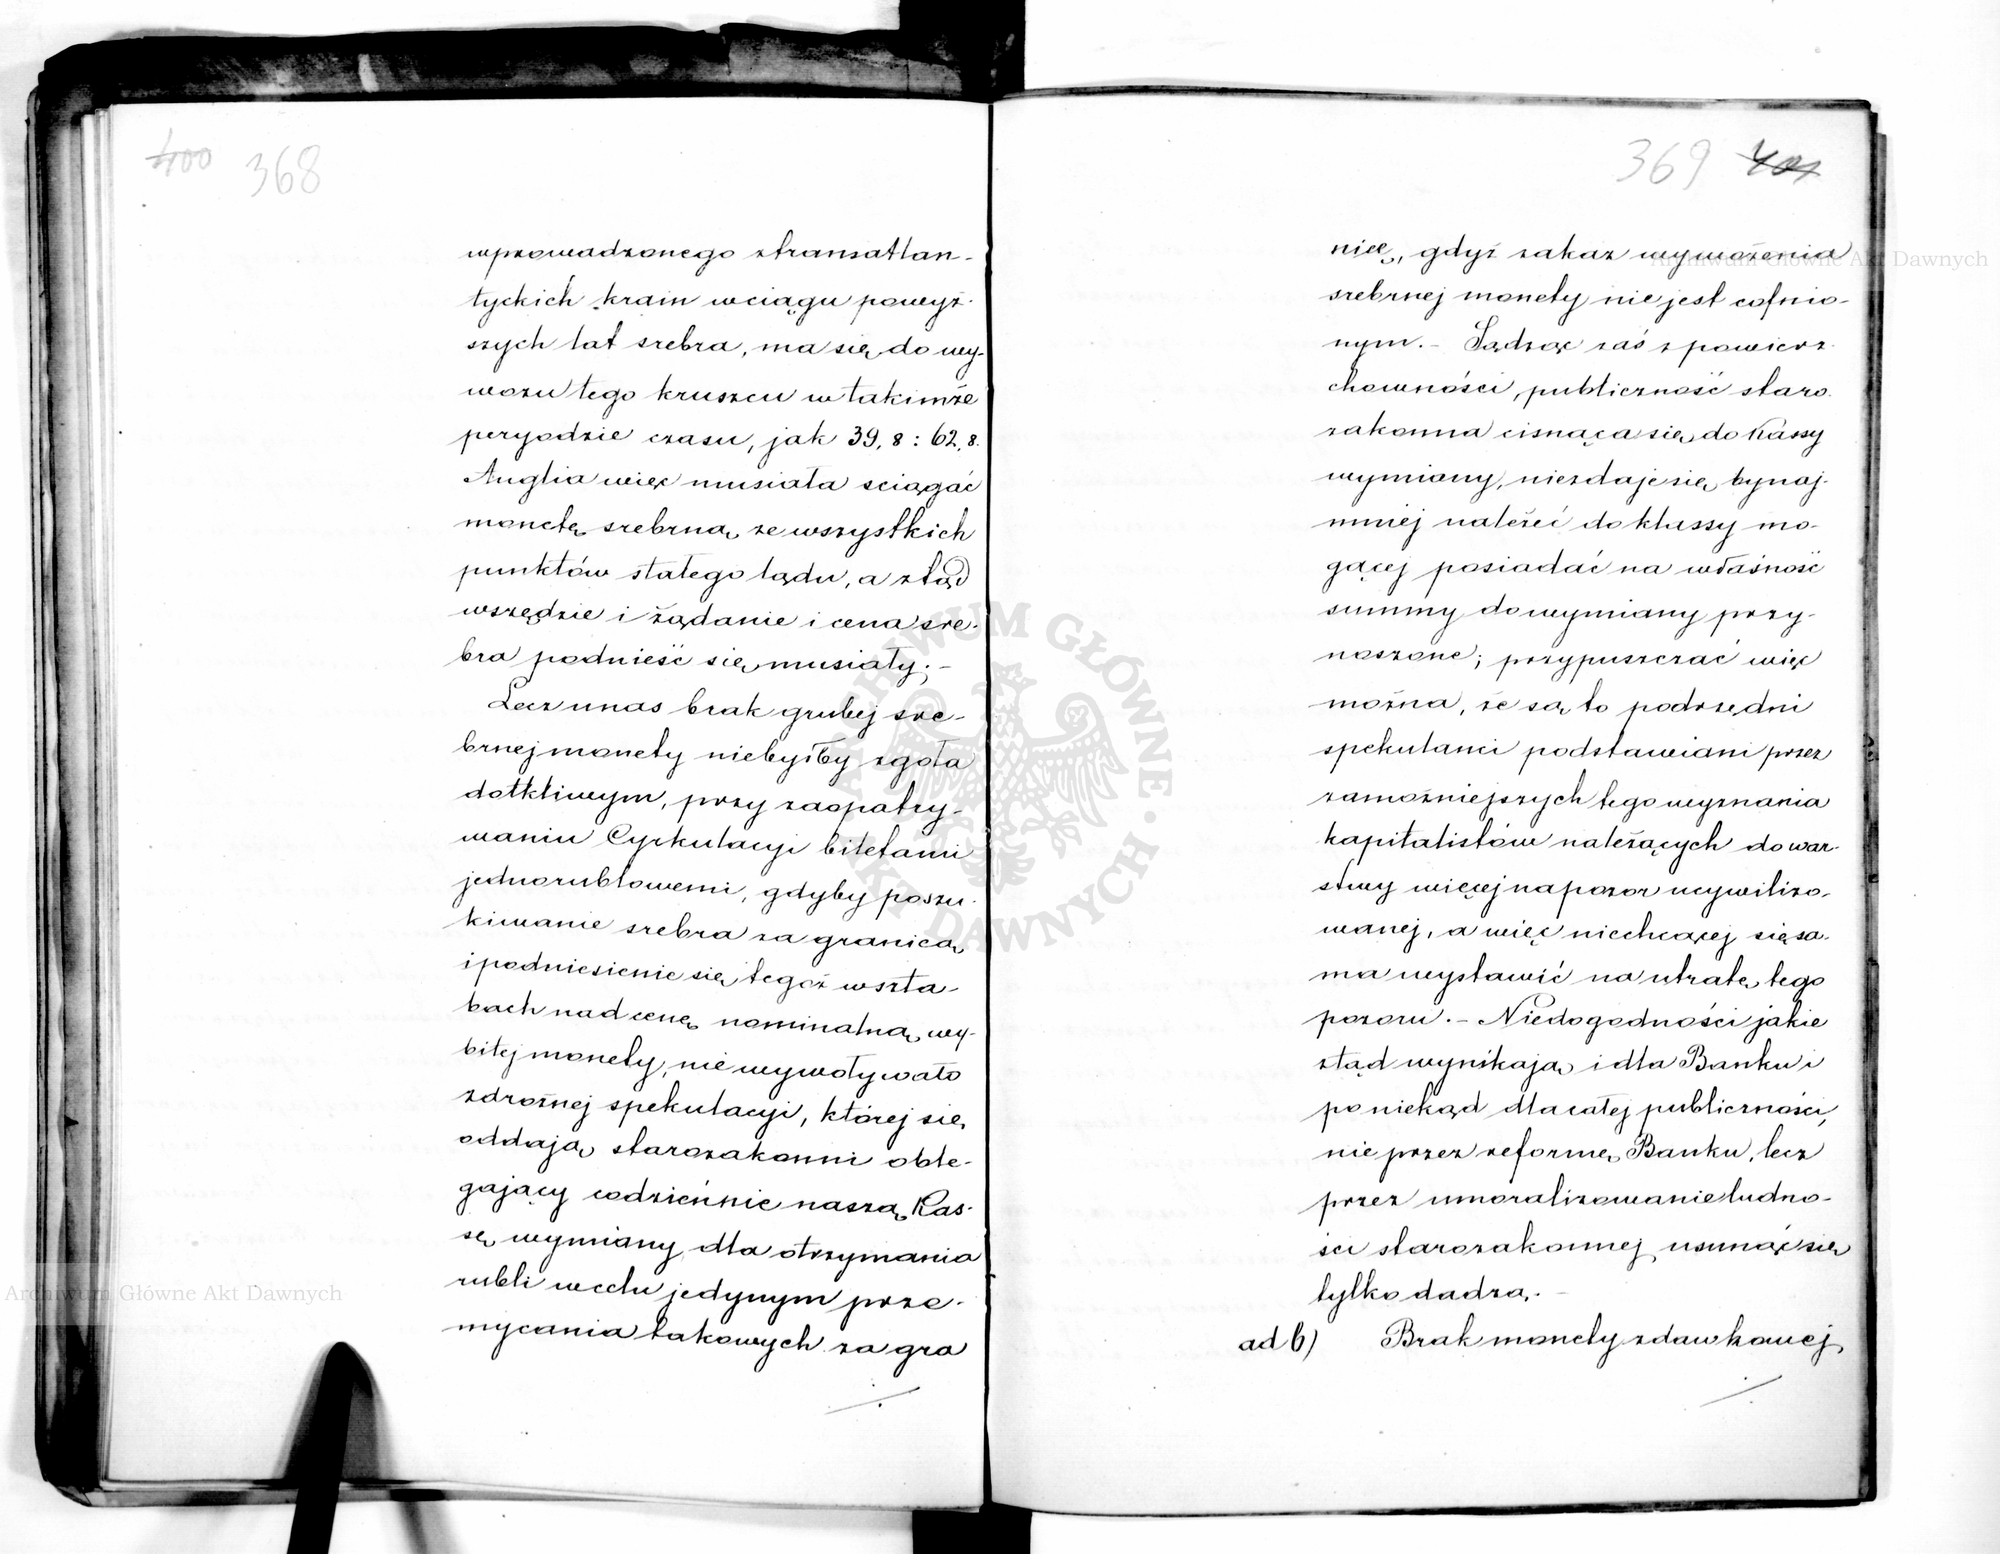 400 368
wprowadzonego ztransatlan-
tyckich krain wciągu powyż-
szych lat srebra, ma się do wy-
wozu tego kruszcu w takimże
peryodzie czasu, jak 39,8 : 62,8.
Anglia więc musiała sciągać
monetę srebrną ze wszystkich
punktów stałego lądu, a ztąd
wszędzie i żądanie i cena sre-
bra podnieść się musiały. -
Lecz unas brak grubej sre-
brnej monety niebyłby zgoła
dotkliwym, przy zaopatry-
waniu Cyrkulacyi biletami
jednorublowemi, gdyby poszu-
kiwanie srebra za granicą
i podniesienie się tegoż wszta-
bach nad cenę nominalną wy-
bitej monety, nie wywoływało
zdrożnej spekulacyi, której się
oddają starozakonni oble-
gający codziennie naszą Kas-
sę wymiany dla otrzymania
rubli wcelu jedynym prze-
mycania takowych za gra
369 401
nicę, gdyż zakaz wywożenia
srebrnej monety nie jest cofnio-
nym. - Sądząc zaś z powierz-
chowności, publiczność staro-
zakonna cisnąca się do Kassy
wymiany, niezdaje się bynaj-
mniej należeć do klassy mo-
gącej posiadać na własność
summy do wymiany przy-
noszone; przypuszczać więc
można, że są to podrzędni
spekulanci podstawiani przez
zamożniejszych tego wyznania
kapitalistów należących do war-
stwy więcej na pozor ucywilizo-
wanej, a więc niechcącej się sa-
ma wystawić na utratę tego
pozoru. - Niedogodności jakie
ztąd wynikają i dla Banku i
poniekąd dla całej publiczności,
nie przez reformę Banku, lecz
przez umoralizowanie ludno-
ści starozakonnej usunąć się
tylko dadzą. -
ad b) Brak monety zdawkowej
ARCHIWUM GŁÓWNE AKT DAWNYCH
Archiwum Główne Akt Dawnych
Archiwum Główne Akt Dawnych